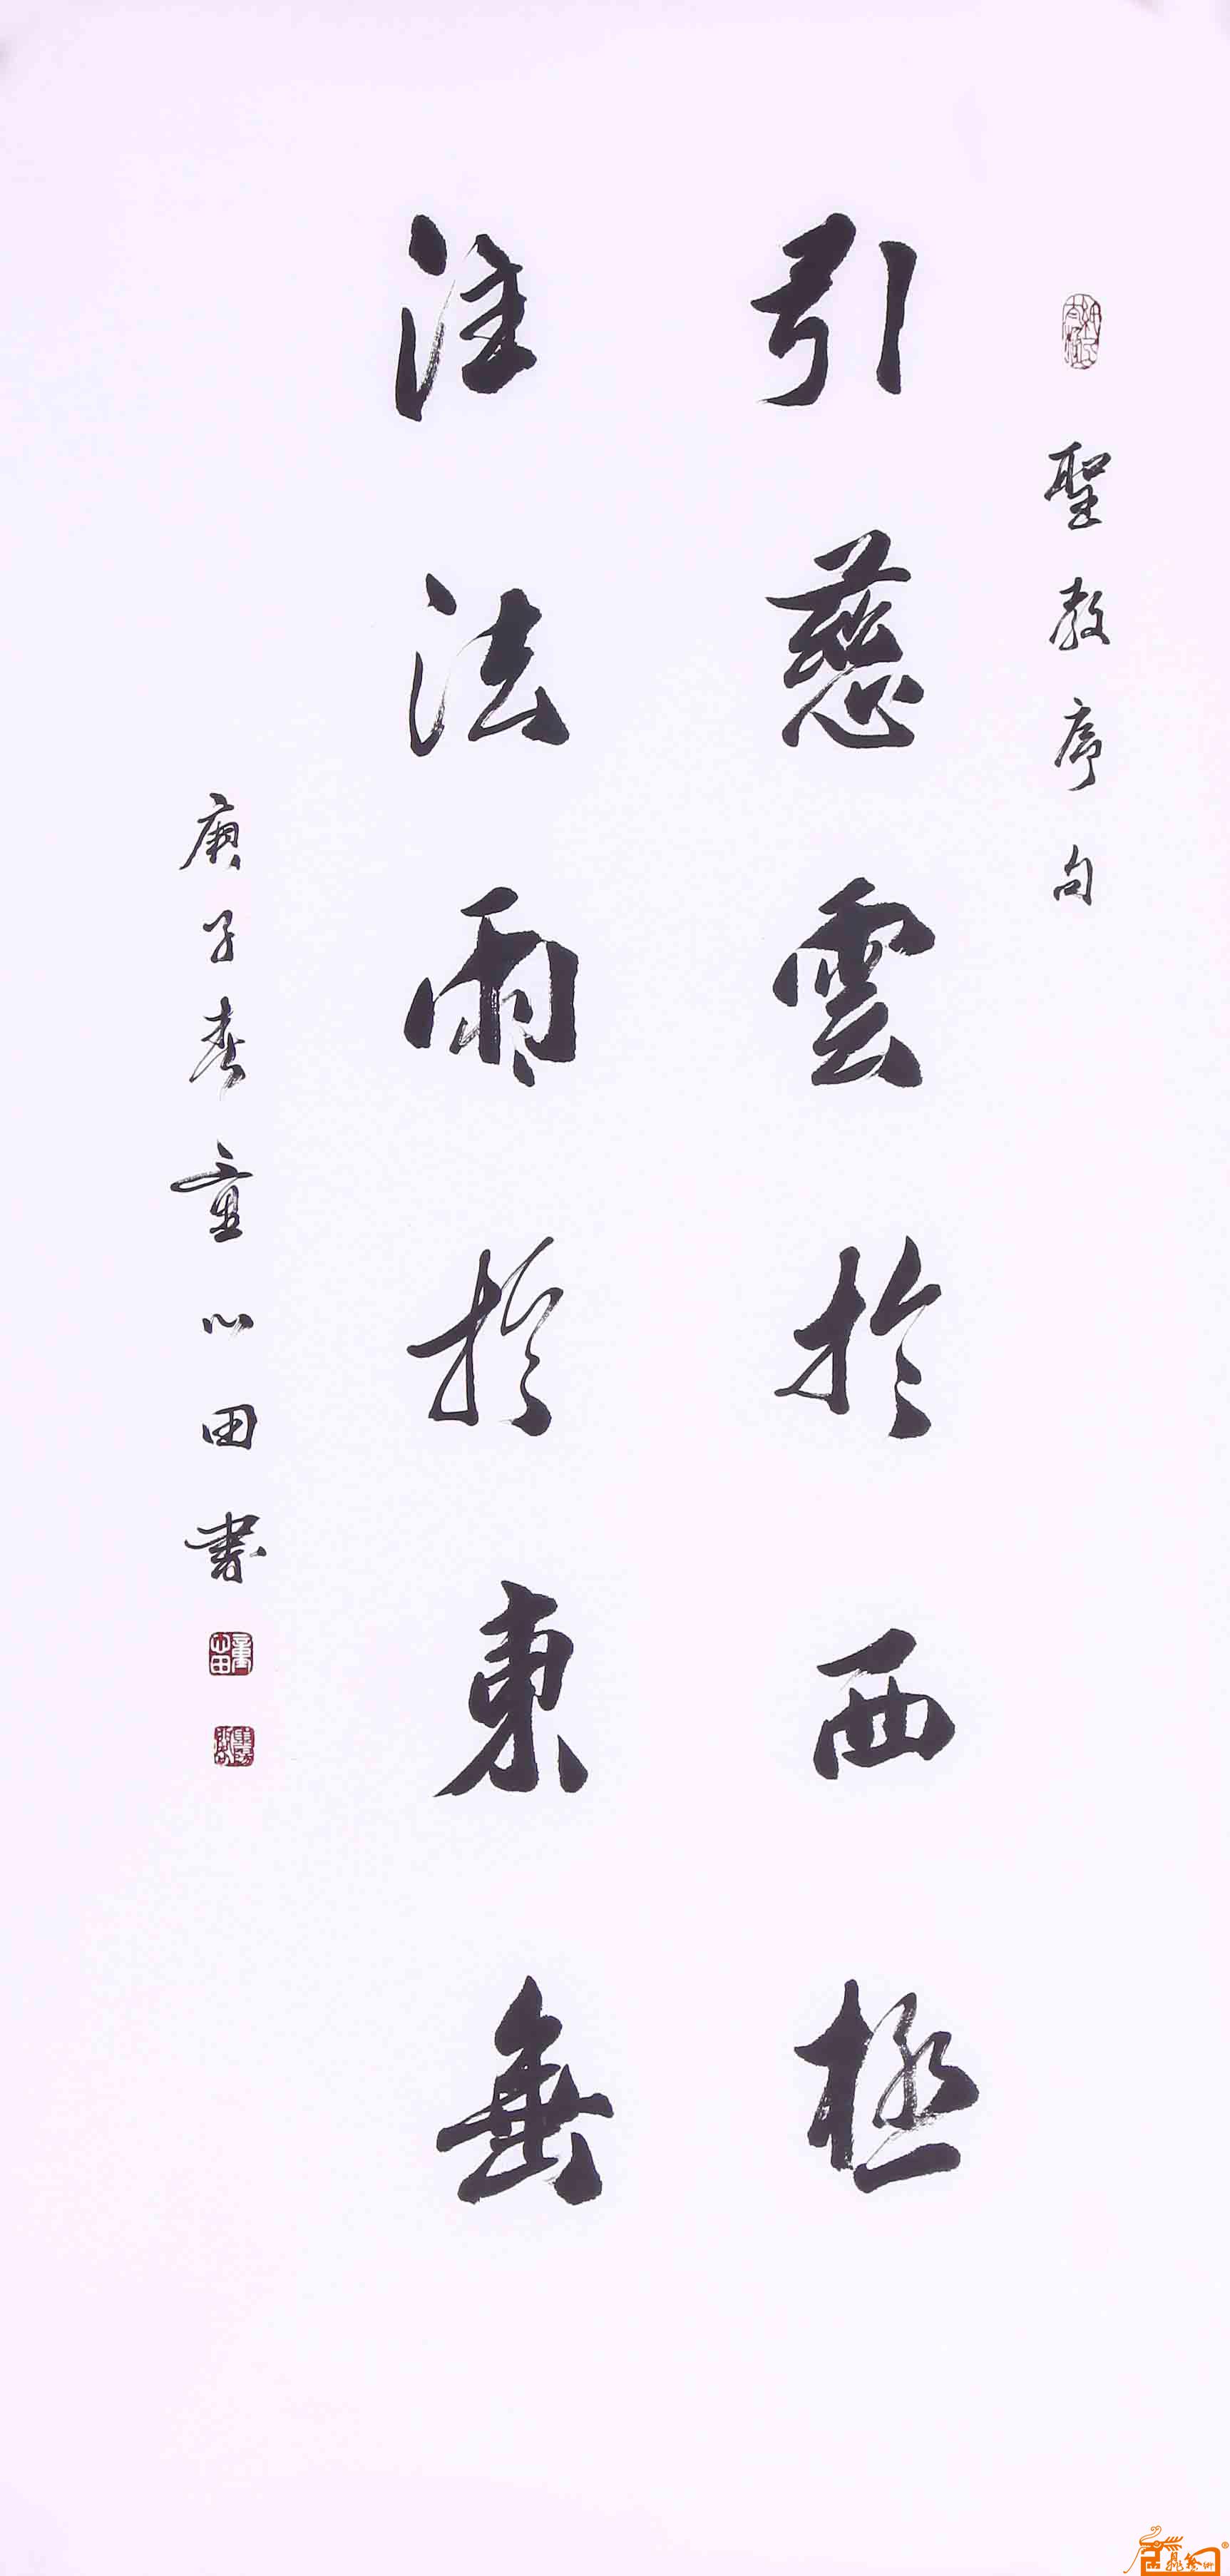 聖教序句
引慈雲於西極
注法雨於東垂
庚子春童心田書
童心田